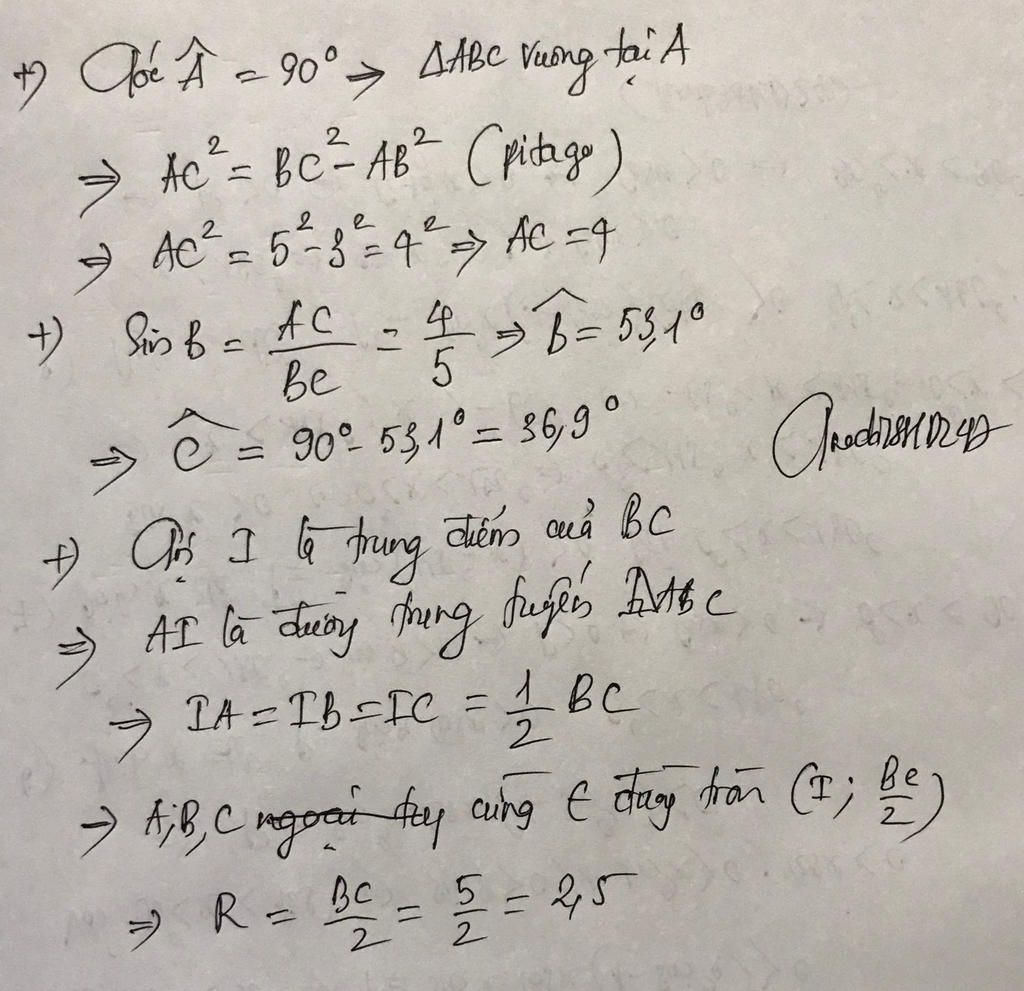 +) Góc Â = 90° ⇒ ΔABC vuông tại A
⇒ AC² = BC² - AB² (pitago)
⇒ AC² = 5² - 3² = 4² ⇒ AC = 4
+) Sin B = AC/BC = 4/5 ⇒ B̂ = 53,1°
⇒ Ĉ = 90° - 53,1° = 36,9°
+) Gọi I là trung điểm của BC
⇒ AI là đường trung tuyến ΔABC
⇒ IA = IB = IC = 1/2 BC
⇒ A;B,C ngoại cùng ∈ đường tròn (I; BC/2)
⇒ R = BC/2 = 5/2 = 2,5